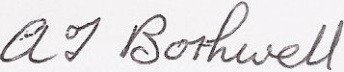 A J Bothwell